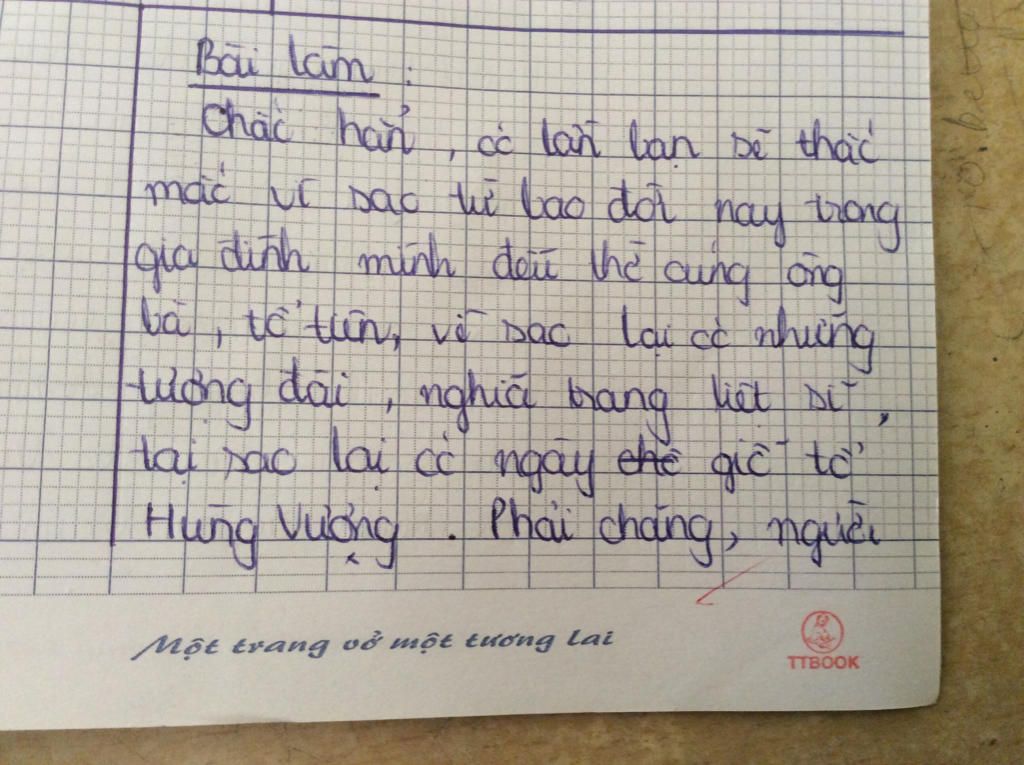 Bài làm :
Chắc hẳn, có lần bạn sẽ thắc
mắc vì sao từ bao đời nay trong
gia đình mình đều thờ cúng ông
bà, tổ tiên, vì sao lại có những
tượng đài, nghĩa trang liệt sĩ,
tại sao lại có ngày giỗ tổ
Hùng Vương. Phải chăng, người
Một trang vở một tương lai
TTBOOK